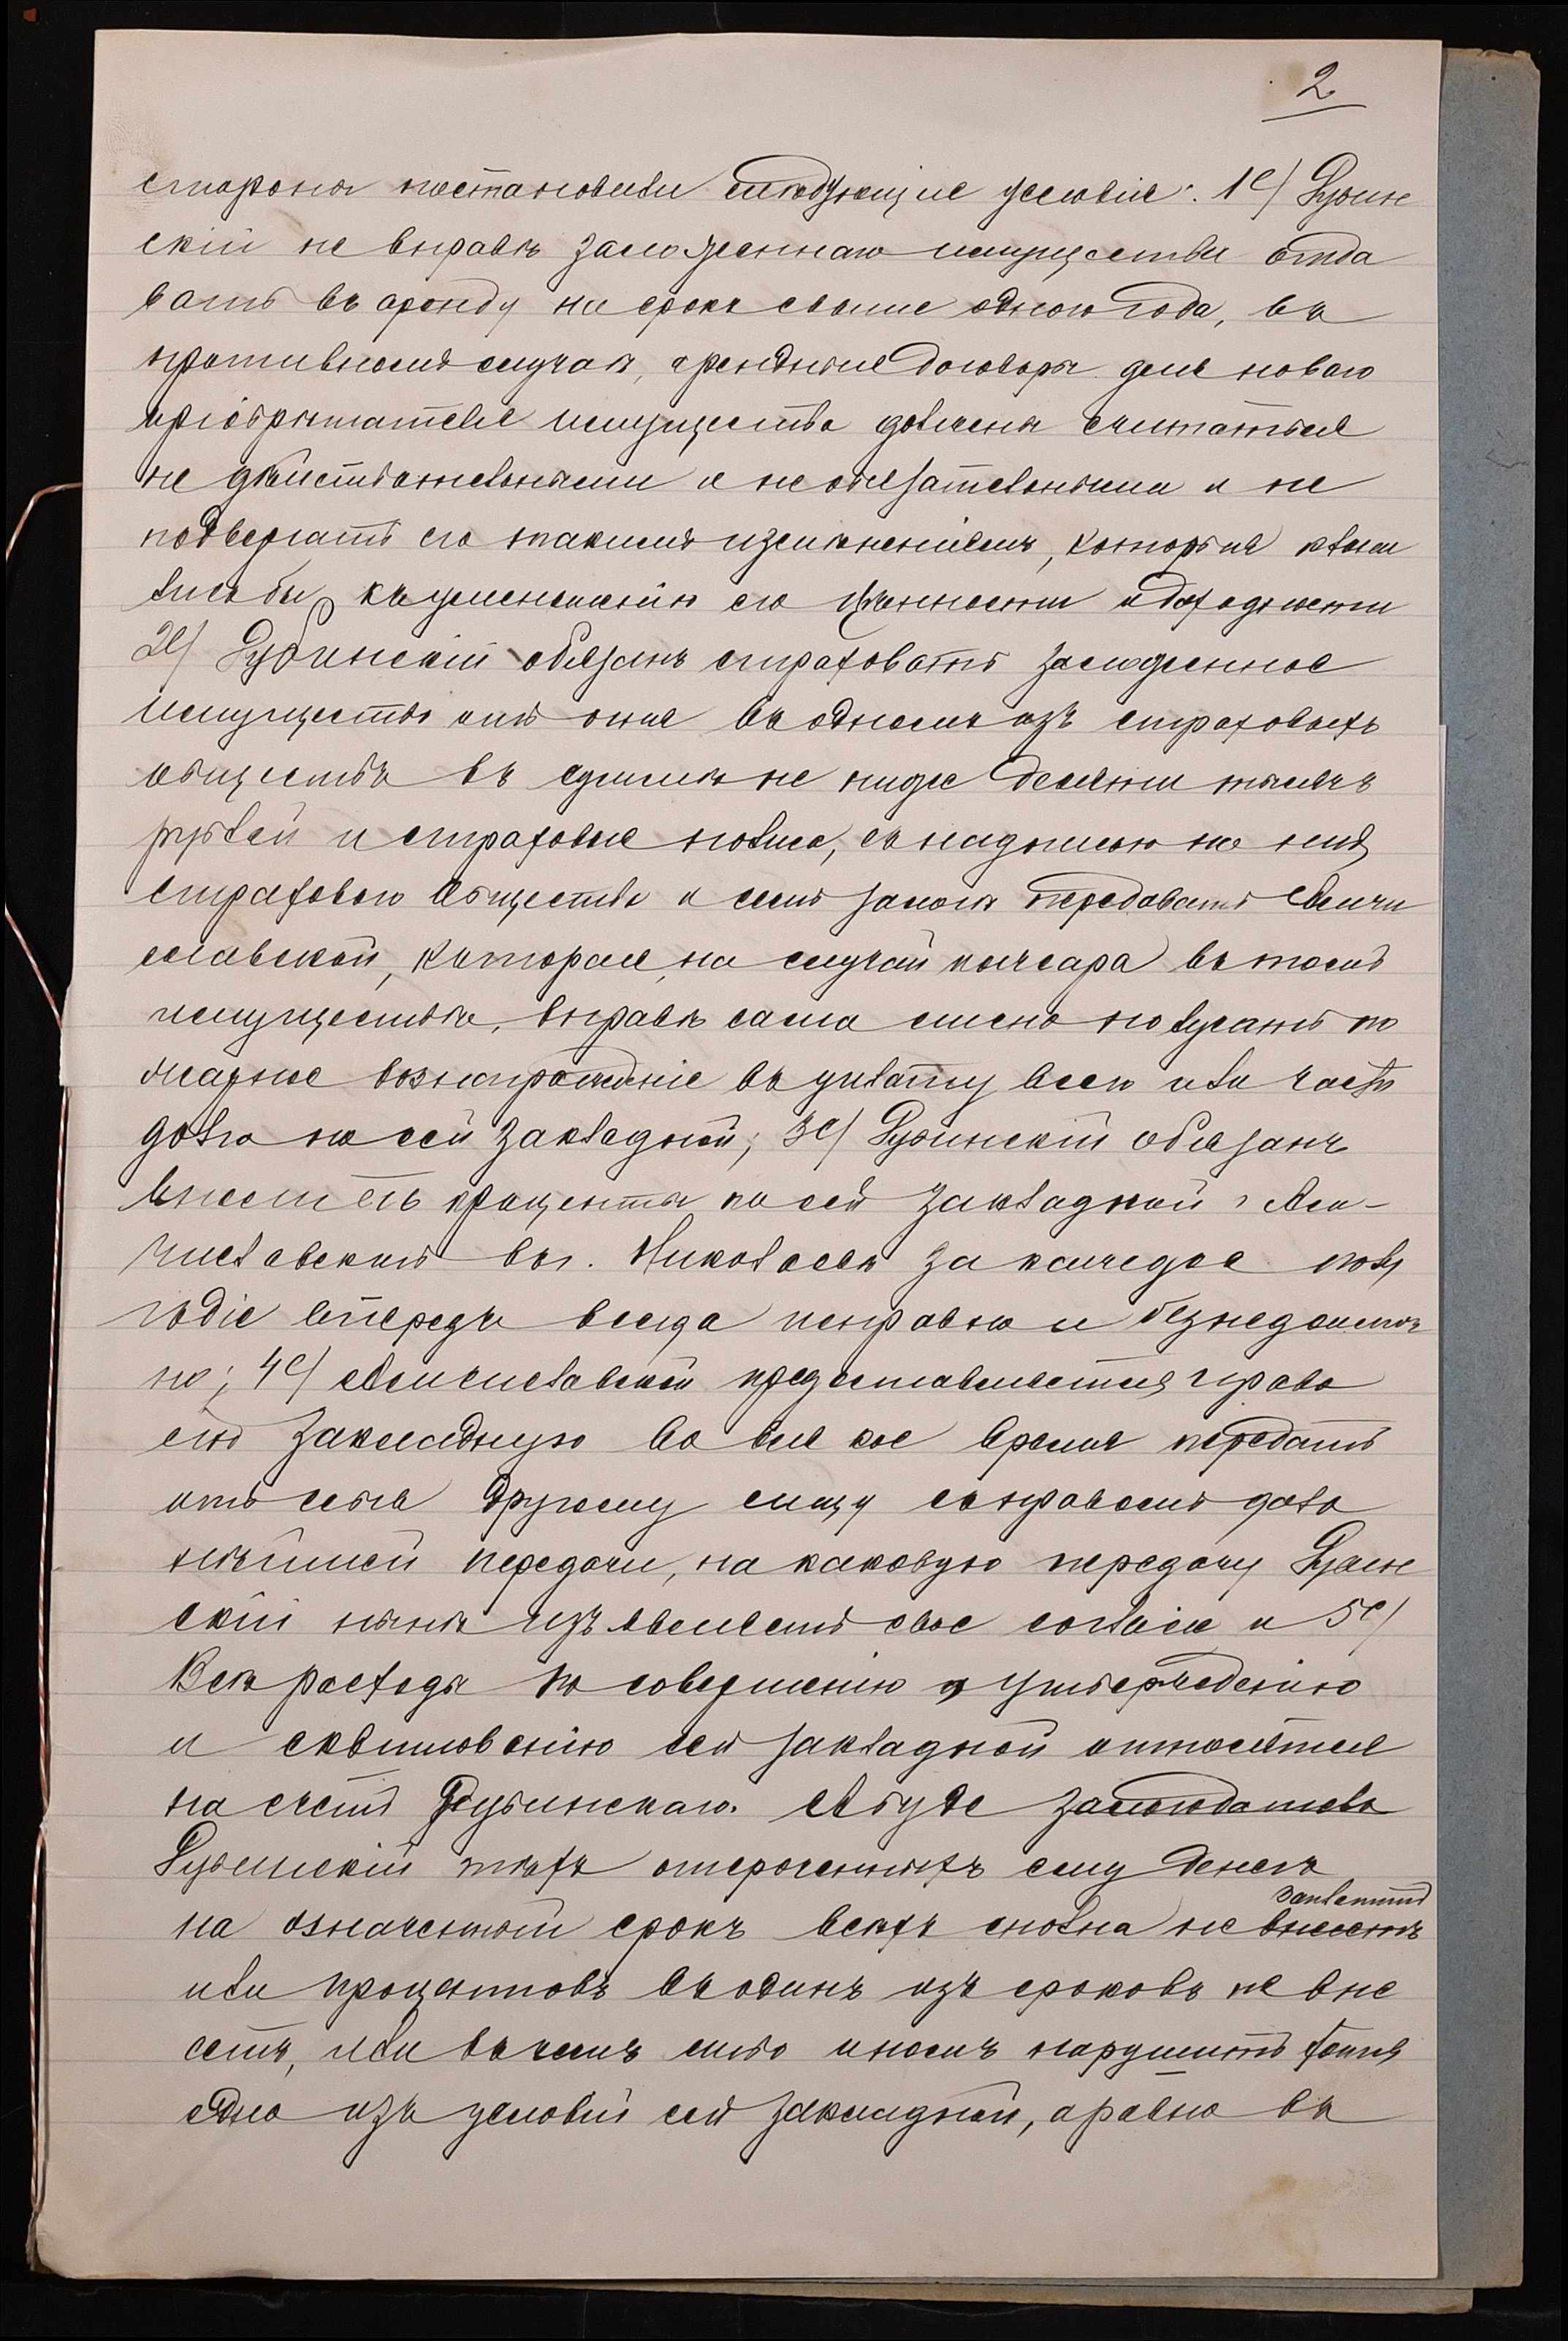 2
стороны постановили слѣдующія условія: 1е/ Рубин
скій не вправѣ заложеннаго имущества отда
вать въ аренду на срокъ свыше одного года, въ
противномъ случаѣ, арендные договоры для новаго
пріобрѣтателя имущества должны считаться
не дѣйствительными и не обязательными и не
подвергать его такимъ измѣненіямъ, которыя клони
лись бы къ уменьшенію его цѣнности и доходности
2е/ Рубинскій обязанъ страховать заложенное
имущество отъ огня въ одномъ изъ страховыхъ
обществъ въ суммѣ не ниже десяти тысячъ
рублей и страховые полиса, съ надписью на нихъ
страхового Общества о семъ залогѣ передавать
которая, на случай пожара въ томъ
имуществѣ, вправѣ сама лично получать по
жарное вознагражденіе въ уплату всего или части
долга по сей закладной; 3е/ Рубинскій обязанъ
вносить проценты по сей закладной
въ г. Николаевѣ за каждое полу
годіе впередъ всегда исправно и безнедоимоч
но; 4е/ предоставляется право
сію закладную во вся кое время передать
отъ себя другому лицу съ правомъ даль
нѣйшей передачи, на каковую передачу Рубин
скій нынѣ изъявляетъ свое согласіе и 5е/
Всѣ расходы по совершенію и утвержденію
и сей закладной относятся
на счетъ Рубинскаго. А буде залогодатель
Рубинскій тѣхъ отсроченныхъ ему денегъ
заплатитъ
на означенный срокъ всѣхъ сполна не внесетъ
или процентовъ въ одинъ изъ сроковъ не вне
сетъ, или въ чемъ либо иномъ нарушитъ хотя
одно изъ условій сей закладной, а равно въ